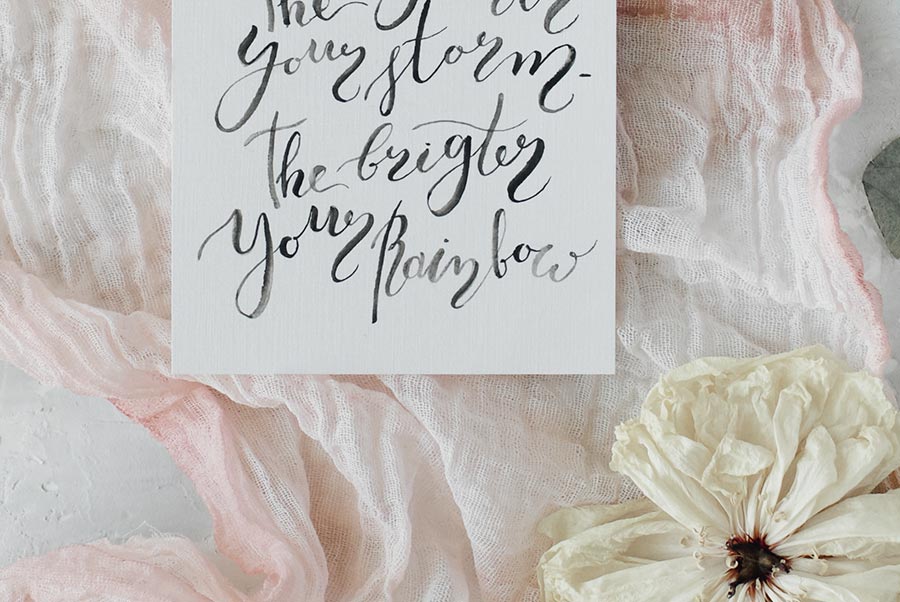 the
your storm-
the brigter
your Rainbow